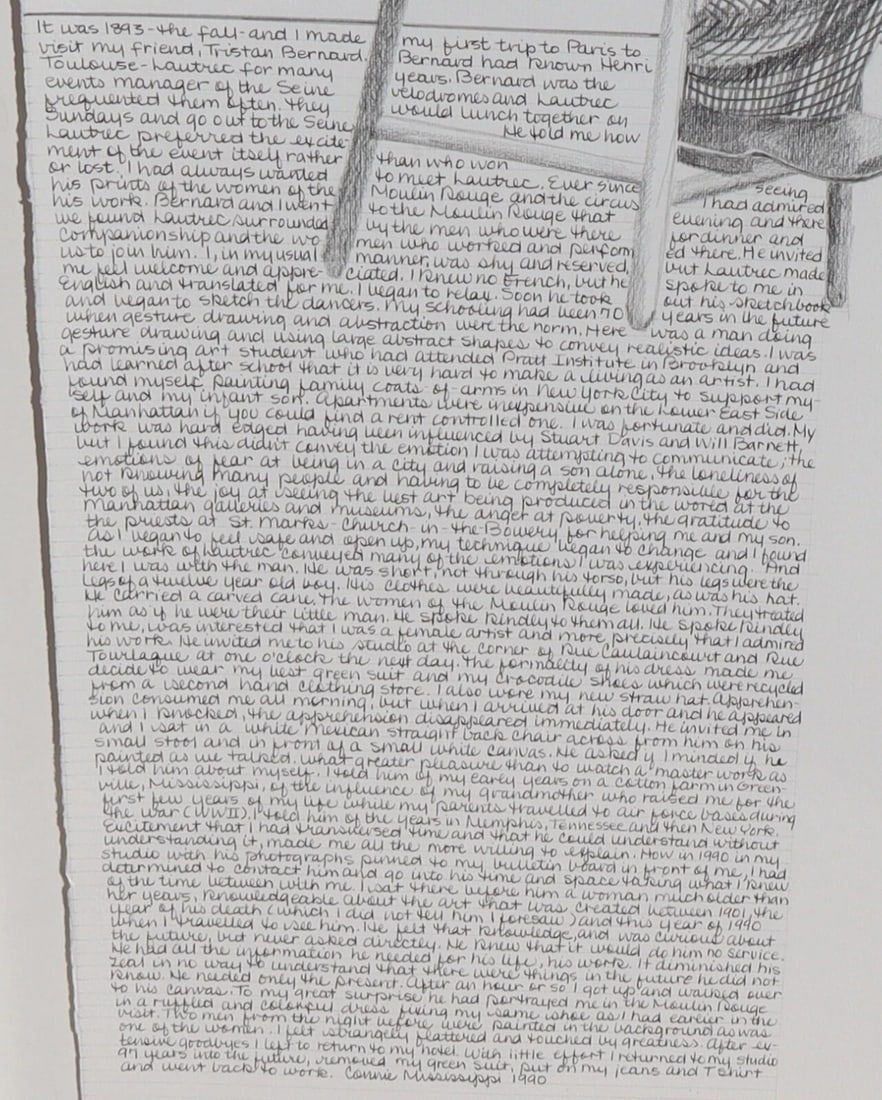 It was 1893-the fall-and I made my first trip to Paris to
visit my friend, Tristan Bernard. Bernard had known Henri
Toulouse-Lautrec for many years. Bernard was the
events manager of the Seine velodromes and Lautrec
frequented them often. They would lunch together on
Sundays and go out to the Seine He told me how
Lautrec preferred the excite-
ment of the event itself rather than who won
or lost. I had always wanted to meet Lautrec. Ever since seeing
his prints of the women of the Moulin Rouge and the circus I had admired
his work. Bernard and I went to the Moulin Rouge that evening and there
we found Lautrec surrounded by the men who were there for dinner and
companionship and the wo men who worked and perform ed there. He invited
us to join him. I, in my usual manner, was shy and reserved, but Lautrec made
me feel welcome and appre- ciated. I knew no French, but he spoke to me in
English and translated for me. I began to relax. Soon he took out his sketchbook
and began to sketch the dancers. My schooling had been 70 years in the future
when gesture drawing and abstraction were the norm. Here was a man doing
gesture drawing and using large abstract shapes to convey realistic ideas. I was
a promising art student who had attended Pratt Institute in Brooklyn and
had learned after school that it is very hard to make a living as an artist. I had
found myself painting family coats-of-arms in New York City to support my-
self and my infant son. Apartments were inexpensive on the Lower East Side
of Manhattan if you could find a rent controlled one. I was fortunate and did. My
work was hard edged having been influenced by Stuart Davis and Will Barnett,
but I found this didn't convey the emotion I was attempting to communicate; the
emotions of fear at being in a city and raising a son alone, the loneliness of
not knowing many people and having to be completely responsible for the
two of us, the joy at seeing the best art being produced in the world at the
Manhattan galleries and museums, the anger at poverty, the gratitude to
the priests at St. Marks-Church-in-the-Bowery, for helping me and my son.
as I began to feel safe and open up, my technique began to change and I found
the work of Lautrec conveyed many of the emotions I was experiencing. And
here I was with the man. He was short, not through his torso, but his legs were the
legs of a twelve year old boy. His clothes were beautifully made, as was his hat.
He carried a carved cane. The women of the Moulin Rouge loved him. They treated
him as if he were their little man. He spoke kindly to them all. He spoke kindly
to me, was interested that I was a female artist and more precisely that I admired
his work. He invited me to his studio at the corner of Rue Caulaincourt and Rue
Tourlaque at one o'clock the next day. The formality of his dress made me
decide to wear my best green suit and my crocodile shoes which were recycled
from a second hand clothing store. I also wore my new straw hat. Apprehen-
sion consumed me all morning, but when I arrived at his door and he appeared
when I knocked, the apprehension disappeared immediately. He invited me in
and I sat in a white Mexican straight back chair across from him on his
small stool and in front of a small white canvas. He asked if I minded if he
painted as we talked. What greater pleasure than to watch a master work as
I told him about myself. I told him of my early years on a cotton farm in Green-
ville, Mississippi, of the influence of my grandmother who raised me for the
first few years of my life while my parents travelled to air force bases during
the war (WWII). I told him of the years in Memphis, Tennessee and then New York.
Excitement that I had transversed time and that he could understand without
understanding it, made me all the more willing to explain. How in 1990 in my
studio with his photographs pinned to my bulletin board in front of me, I had
determined to contact him and go into his time and space taking what I knew
of the time between with me. I sat there before him a woman much older than
her years, knowledgeable about the art that was created between 1901, the
year of his death (which I did not tell him I foresaw) and this year of 1990
when I travelled to see him. He felt that knowledge, and was curious about
the future, but never asked directly. He knew that it would do him no service.
He had all the information he needed for his life, his work. It diminished his
zeal in no way to understand that there were things in the future he did not
know. He needed only the present. After an hour or so I got up and walked over
to his canvas. To my great surprise he had portrayed me in the Moulin Rouge
in a ruffled and colorful dress fixing my same shoe as I had earlier in the
visit. Two men from the night before were painted in the background as was
one of the women. I felt strangely flattered and touched by greatness. After ex-
tensive goodbyes I left to return to my hotel. With little effort I returned to my studio
97 years into the future, removed my green suit, put on my jeans and T shirt
and went back to work. Connie Mississippi 1990